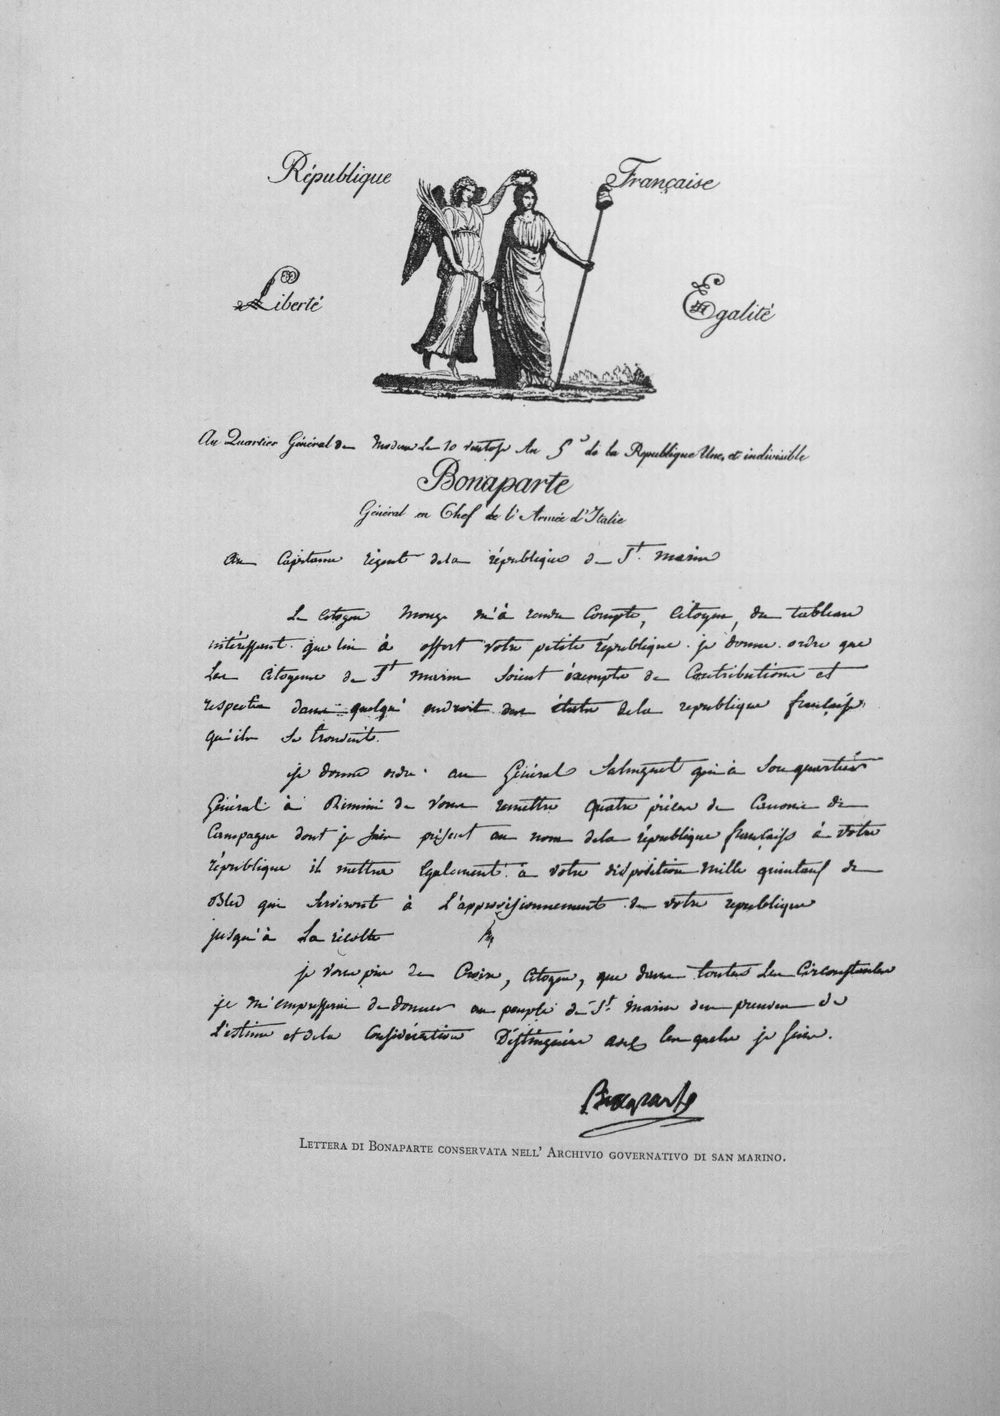 République Française
Liberté Égalité
Au Quartier Général de Modene Le 10 ventose An 5e de la République Une, et indivisible
Bonaparte
Général en Chef de l'Armée d'Italie
au Capitaine régent de la république de St. marin
Le Citoyen Monge m'à rendu Compte, Citoyen, du tableau
intéressant que lui à offert votre petite république. je donne ordre que
Les Citoyens de St marin Soient éxempts de Contributions et
respectés dans quelqu' endroit des états de la republique française
qu'ils se trouvent.
je donne ordre au Général Sahuguet qui à Son quartier
Général à Rimini de vous remettre quatre pièces de Canons de
Campagne dont je fais présent au nom de la république française à votre
république il mettra Egalement à votre disposition Mille quintaux de
Bled qui Serviront à L'approvisionnement de votre republique
jusqu'à La récolte
je vous prie de Croire, Citoyen, que dans toutes Les Circonstances
je m'empresserai de donner au peuple de St. Marin des preuves de
L'estime et de la Considération Distinguée avec lesquelles je suis.
Bonaparte
LETTERA DI BONAPARTE CONSERVATA NELL' ARCHIVIO GOVERNATIVO DI SAN MARINO.